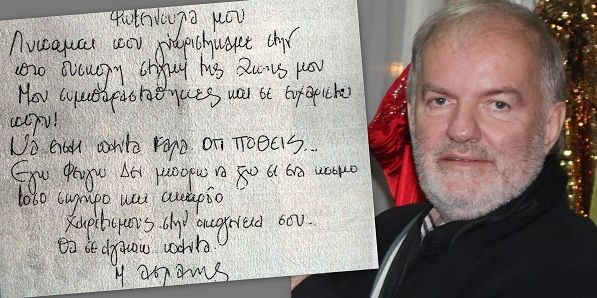 Φωτεινούλα μου
Λυπάμαι που γνωριστήκαμε στην
πιο δύσκολη στιγμή της ζωής μου
Μου συμπαραστάθηκες και σε ευχαριστώ
πολύ!
Να είσαι πάντα καλά ΟΤΙ ΠΟΘΕΙΣ...
Εγώ Φεύγω Δεν μπορώ να ζω σε ένα κόσμο
τόσο σκληρό και άκαρδο
Χαιρετισμούς στην οικογένειά σου..
Θα σε αγαπώ πάντα